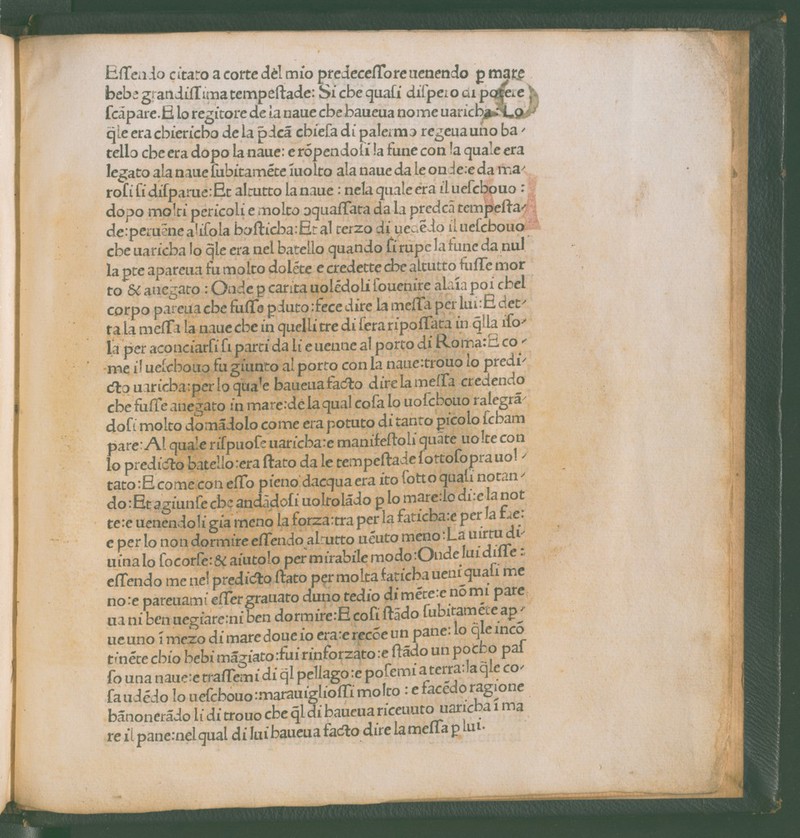 Eſſendo citato a corte del mio predeceſſore uenendo ꝑ mare
hebe grandiſſima tempeſtade: Si che quaſi diſpero di potere
ſcāpare. E lo regitore de la naue che haueua nome uaricha: Lo
q̄le era chiericho de la p̄dcā chieſa di palermo regeua uno ba⸗
tello che era dopo la naue: e rōpendoſi la fune con la quale era
legato ala naue ſubitamēte īuolto ala naue da le onde:e da ma⸗
roſi ſi diſparue:Et altutto la naue : nela quale era il ueſchouo :
dopo molti pericoli e molto ɔquaſſata da la predcā tempeſta⸗
de:peruēne aliſola hoſticha:Et al terzo di uedēdo il ueſchouo
che uaricha lo q̄le era nel batello quando ſi rupe la fune da nul
la pte apareua fu molto dolēte e credette che altutto fuſſe mor
to & anegato : Onde p carita uolēdoli ſouenire alaīa poi chel
corpo pareua che fuſſe pduto:fece dire la meſſa per lui:E det⸗
ta la meſſa la naue che in quelli tre di ſera ripoſſata in q̄lla iſo⸗
la per aconciarſi ſi parti da li e uenne al porto di Roma:E co⸗
me il ueſchouo fu giunto al porto con la naue:trouo lo predi⸗
cto uaricha:per lo quale haueua facto dire la meſſa credendo
che fuſſe anegato in mare:de la qual coſa lo ueſchouo ralegrā
doſi molto domādolo come era potuto di tanto picolo ſcham
pare:Al quale riſpuoſe uaricha:e manifeſtoli quāte uolte con
lo predicto batello:era ſtato da le tempeſtade ſottoſopra uol⸗
tato:E come con eſſo pieno dacqua era ito ſotto quaſi notan⸗
do:Et agiunſe che andādoſi uoltolādo p lo mare:lo di:e la not
te:e uenendoli gia meno la forza:tra per la faticha:e per la fae:
e per lo non dormire eſſendo altutto uēuto meno:La uirtu di⸗
uina lo ſocorſe:& aiutolo per mirabile modo:Onde lui diſſe :
eſſendo me nel predicto ſtato per molta faticha ueni quaſi me
no:e pareuami eſſer grauato duno tedio di mēte:e nō mi pare
ua ni ben uegiare:ni ben dormire:E coſi ſtādo ſubitamēte ap⸗
ue uno ī mezo di mare doue io era:e recōe un pane: lo q̄le incō
tinēte chio hebi māgiato:fui rinforzato:e ſtādo un pocho paſ
ſo una naue:e traſſemi di q̄l pellago:e poſemi a terra:la q̄le co⸗
ſa udēdo lo ueſchouo:marauiglioſſi molto : e facēdo ragione
hānonerādo li di trouo che q̄l di haueua riceuuto uaricha ī ma
re il pane:nel qual di lui haueua facto dire la meſſa p lui.